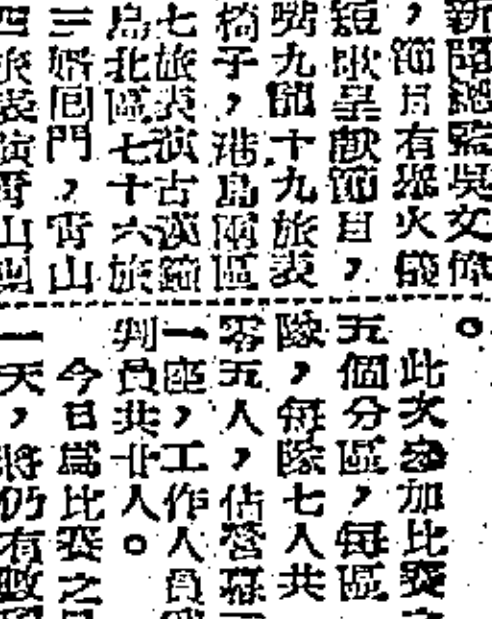 新聞總監吳女偉
，節目有營火儀
短歌呈獻節目，
嘴九龍十九旅表
橋子，港島兩區
七旅表演古漢鐘
島北區七十六旅
三婚囘門，青山
四旅表演青山劃
。
此次參加比賽之
五個分區，每區
隊，每隊七人共
零五人，佔營幕
一座，工作人員
判員共廿人。
今日為比賽之
一天，將仍有